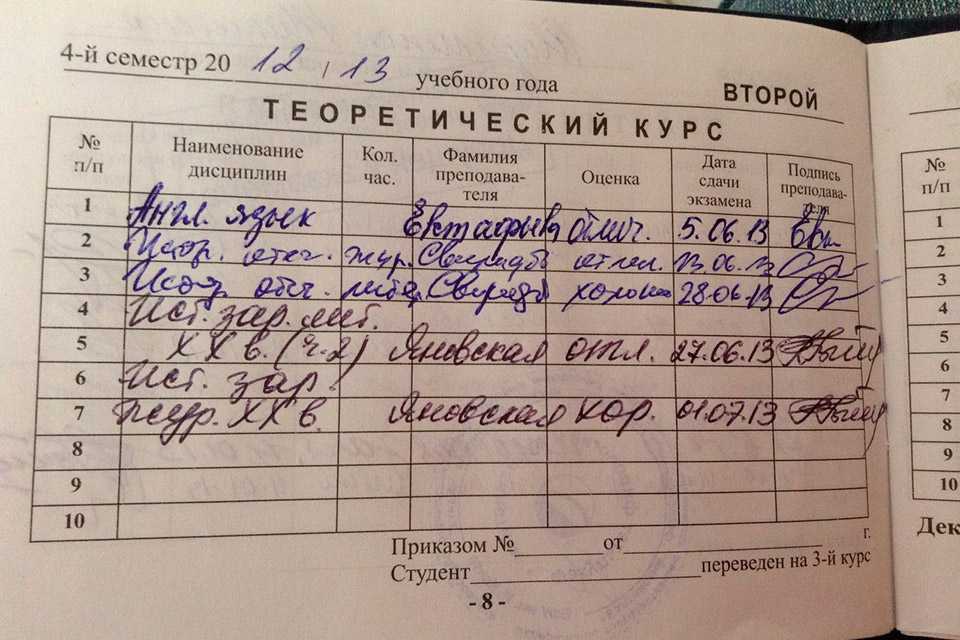 4-й семестр 20 12 / 13 учебного года ВТОРОЙ
ТЕОРЕТИЧЕСКИЙ КУРС
№ п/п Наименование дисциплин Кол. час. Фамилия преподава-теля Оценка Дата сдачи экзамена Подпись преподава-теля
1 Англ. язык отлич. 5.06.13
2 отеч. жур. отлич. 13.06.13
3 отеч. хорошо 28.06.13
4 Ист. зар. лит.
5 XX в. (ч.2) Яновская отл. 27.06.13
6 Ист. зар.
7 журн. XX в. Яновская хор. 01.07.13
8
9
10
Приказом № от г.
Студент переведен на 3-й курс
- 8 -
№ п/п
1
2
3
4
5
6
7
8
9
10
Дек